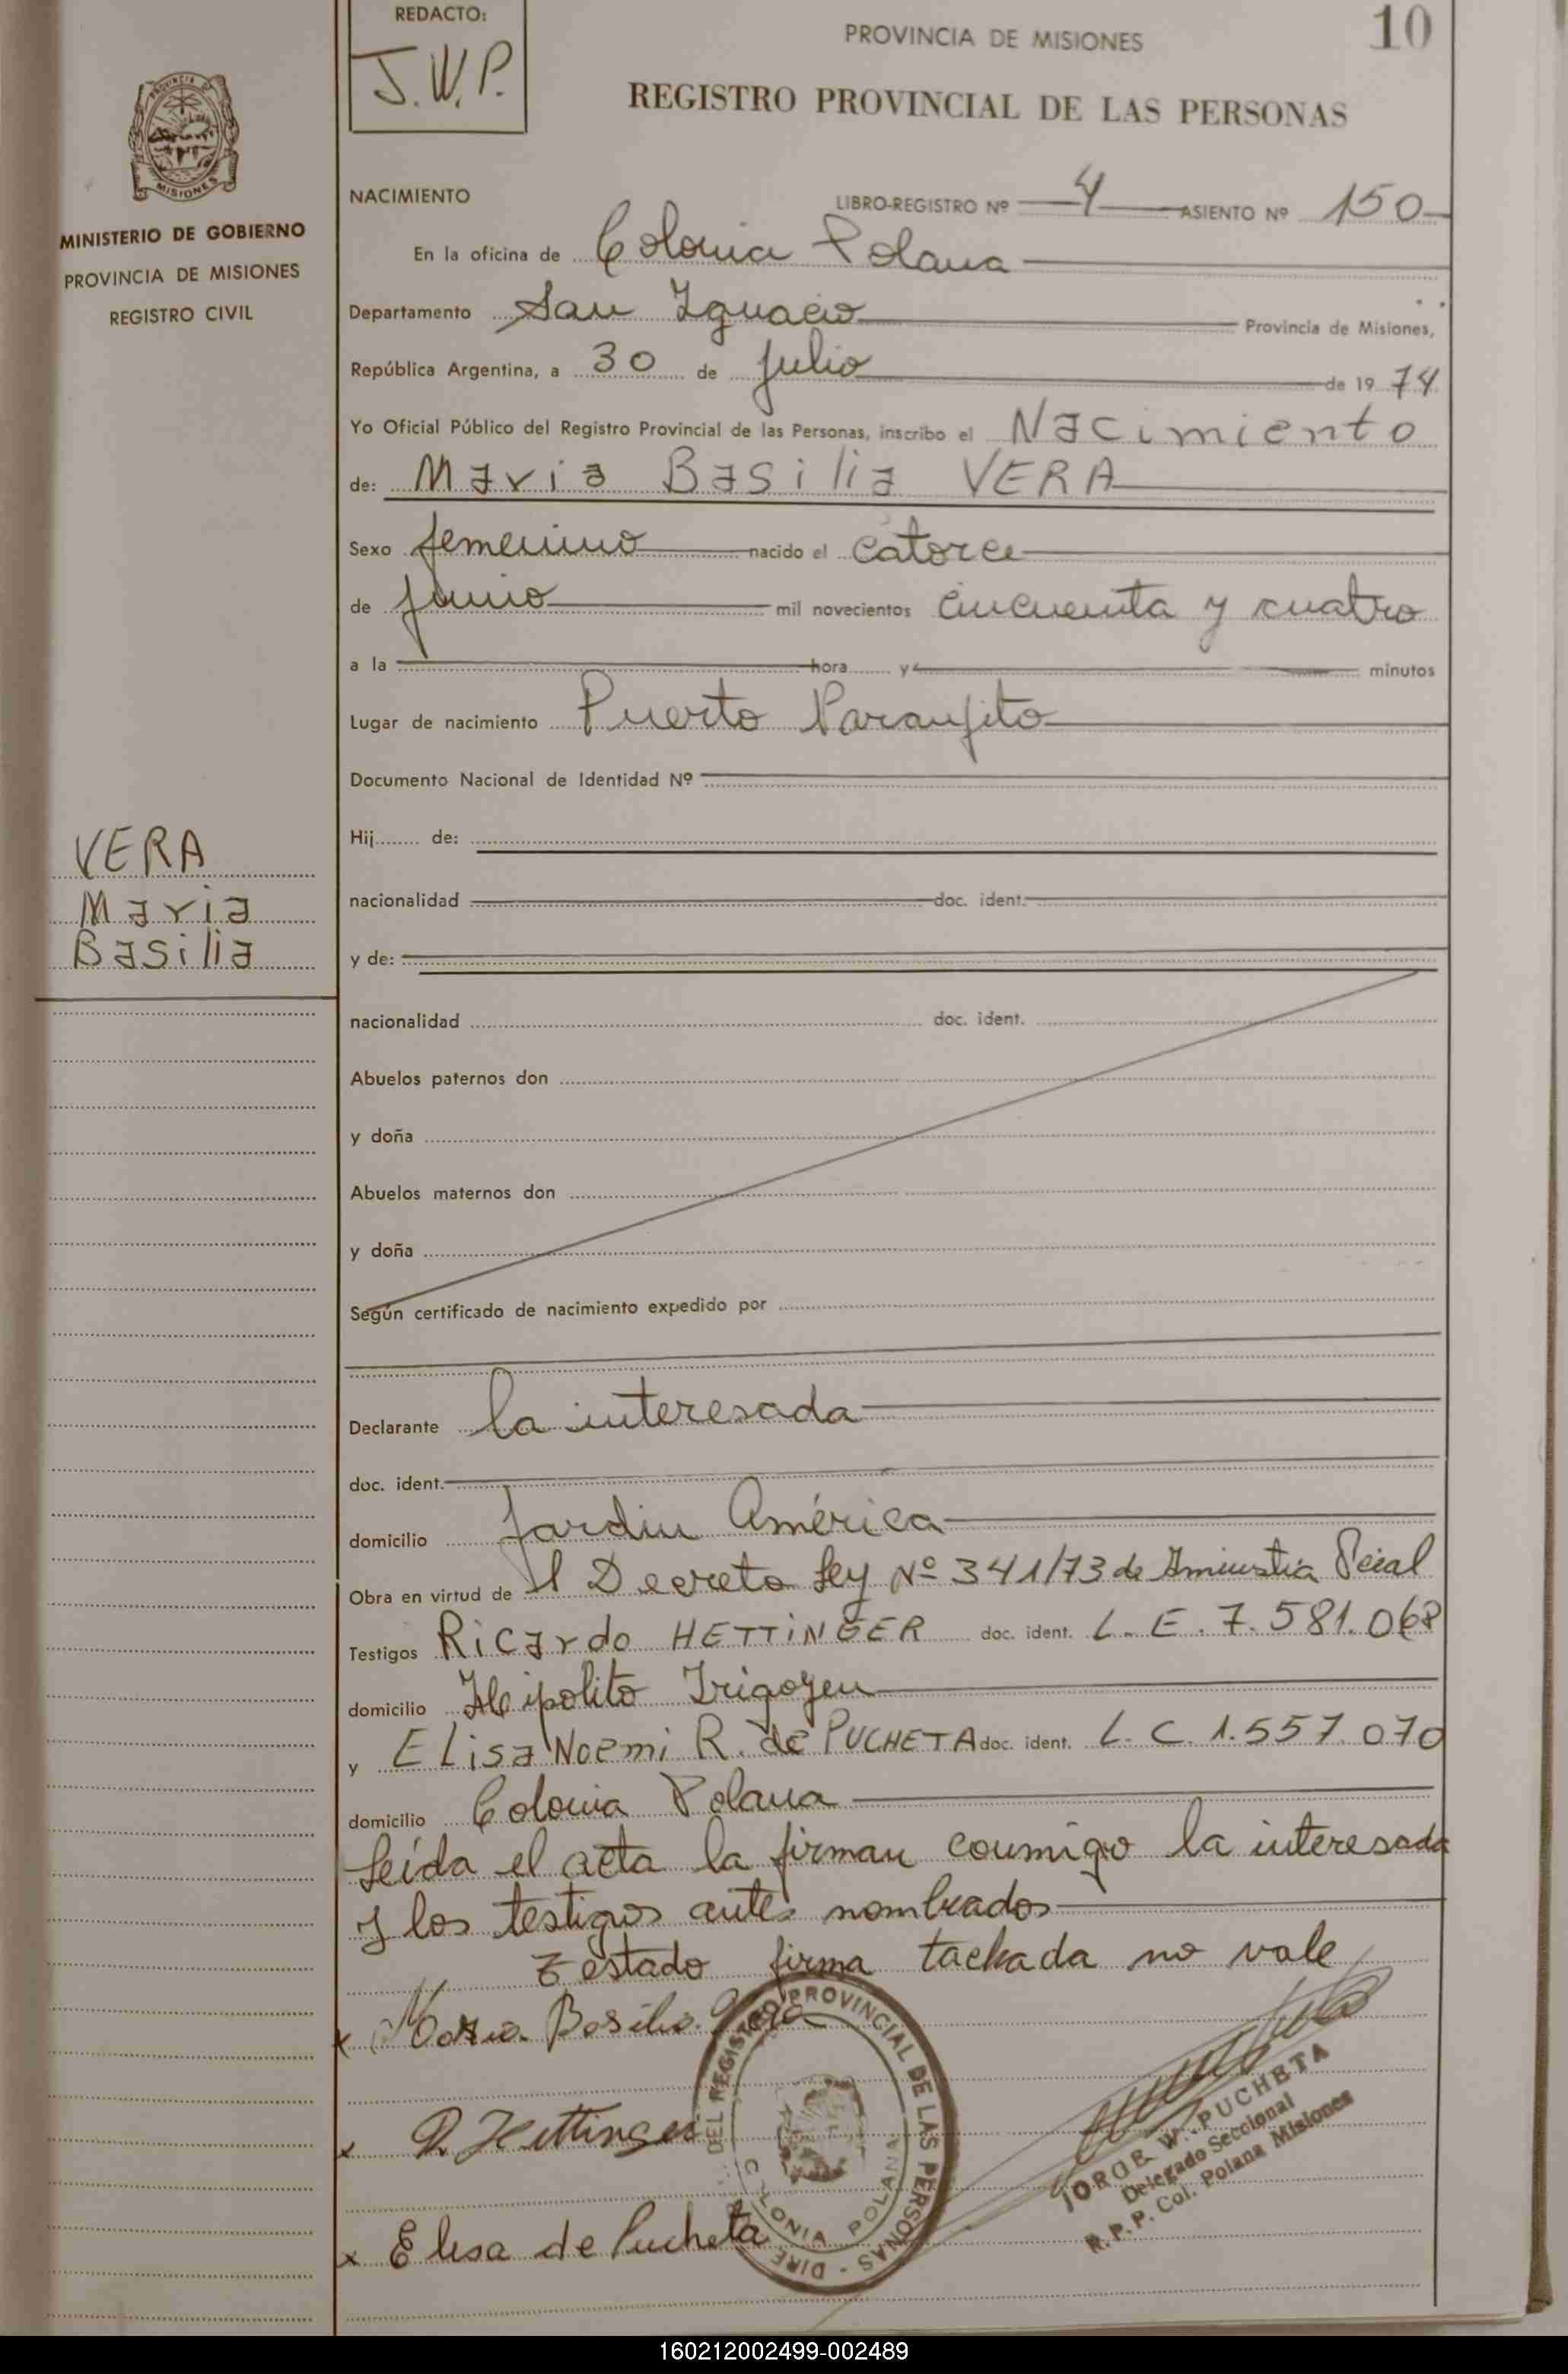 REDACTO:
J.W.P.
PROVINCIA DE MISIONES
10
REGISTRO PROVINCIAL DE LAS PERSONAS
MISIONES
MINISTERIO DE GOBIERNO
PROVINCIA DE MISIONES
REGISTRO CIVIL
NACIMIENTO LIBRO-REGISTRO Nº 4 ASIENTO Nº 150
En la oficina de Colonia Polana
Departamento San Ignacio Provincia de Misiones,
República Argentina, a 30 de julio de 1974
Yo Oficial Público del Registro Provincial de las Personas, inscribo el Nacimiento
de: Maria Basilia VERA
Sexo femenino nacido el catorce
de junio mil novecientos cincuenta y cuatro
a la hora y minutos
Lugar de nacimiento Puerto Naranjito
Documento Nacional de Identidad Nº
VERA
Maria
Basilia
Hij de:
nacionalidad doc. ident.
y de:
nacionalidad doc. ident.
Abuelos paternos don
y doña
Abuelos maternos don
y doña
Según certificado de nacimiento expedido por
Declarante la interesada
doc. ident.
domicilio Jardin América
Obra en virtud de l Decreto Ley Nº 341/73 de Amnistia Pcial
Testigos Ricardo HETTINGER doc. ident. L. E. 7.581.068
domicilio Hipolito Irigoyen
y Elisa Noemi R. de PUCHETA doc. ident. L. C. 1.557.070
domicilio Colonia Polana
Leída el acta la firman conmigo la interesada
y los testigos antes nombrados
Testado firma tachada no vale
x Maria Basilia Vera
x R. Hettinger
x Elisa de Pucheta
DEL REGISTRO PROVINCIAL DE LAS PERSONAS - DIRE
COLONIA POLANA
JORGE W. PUCHETA
Delegado Seccional
R.P.P. Col. Polana Misiones
160212002499-002489